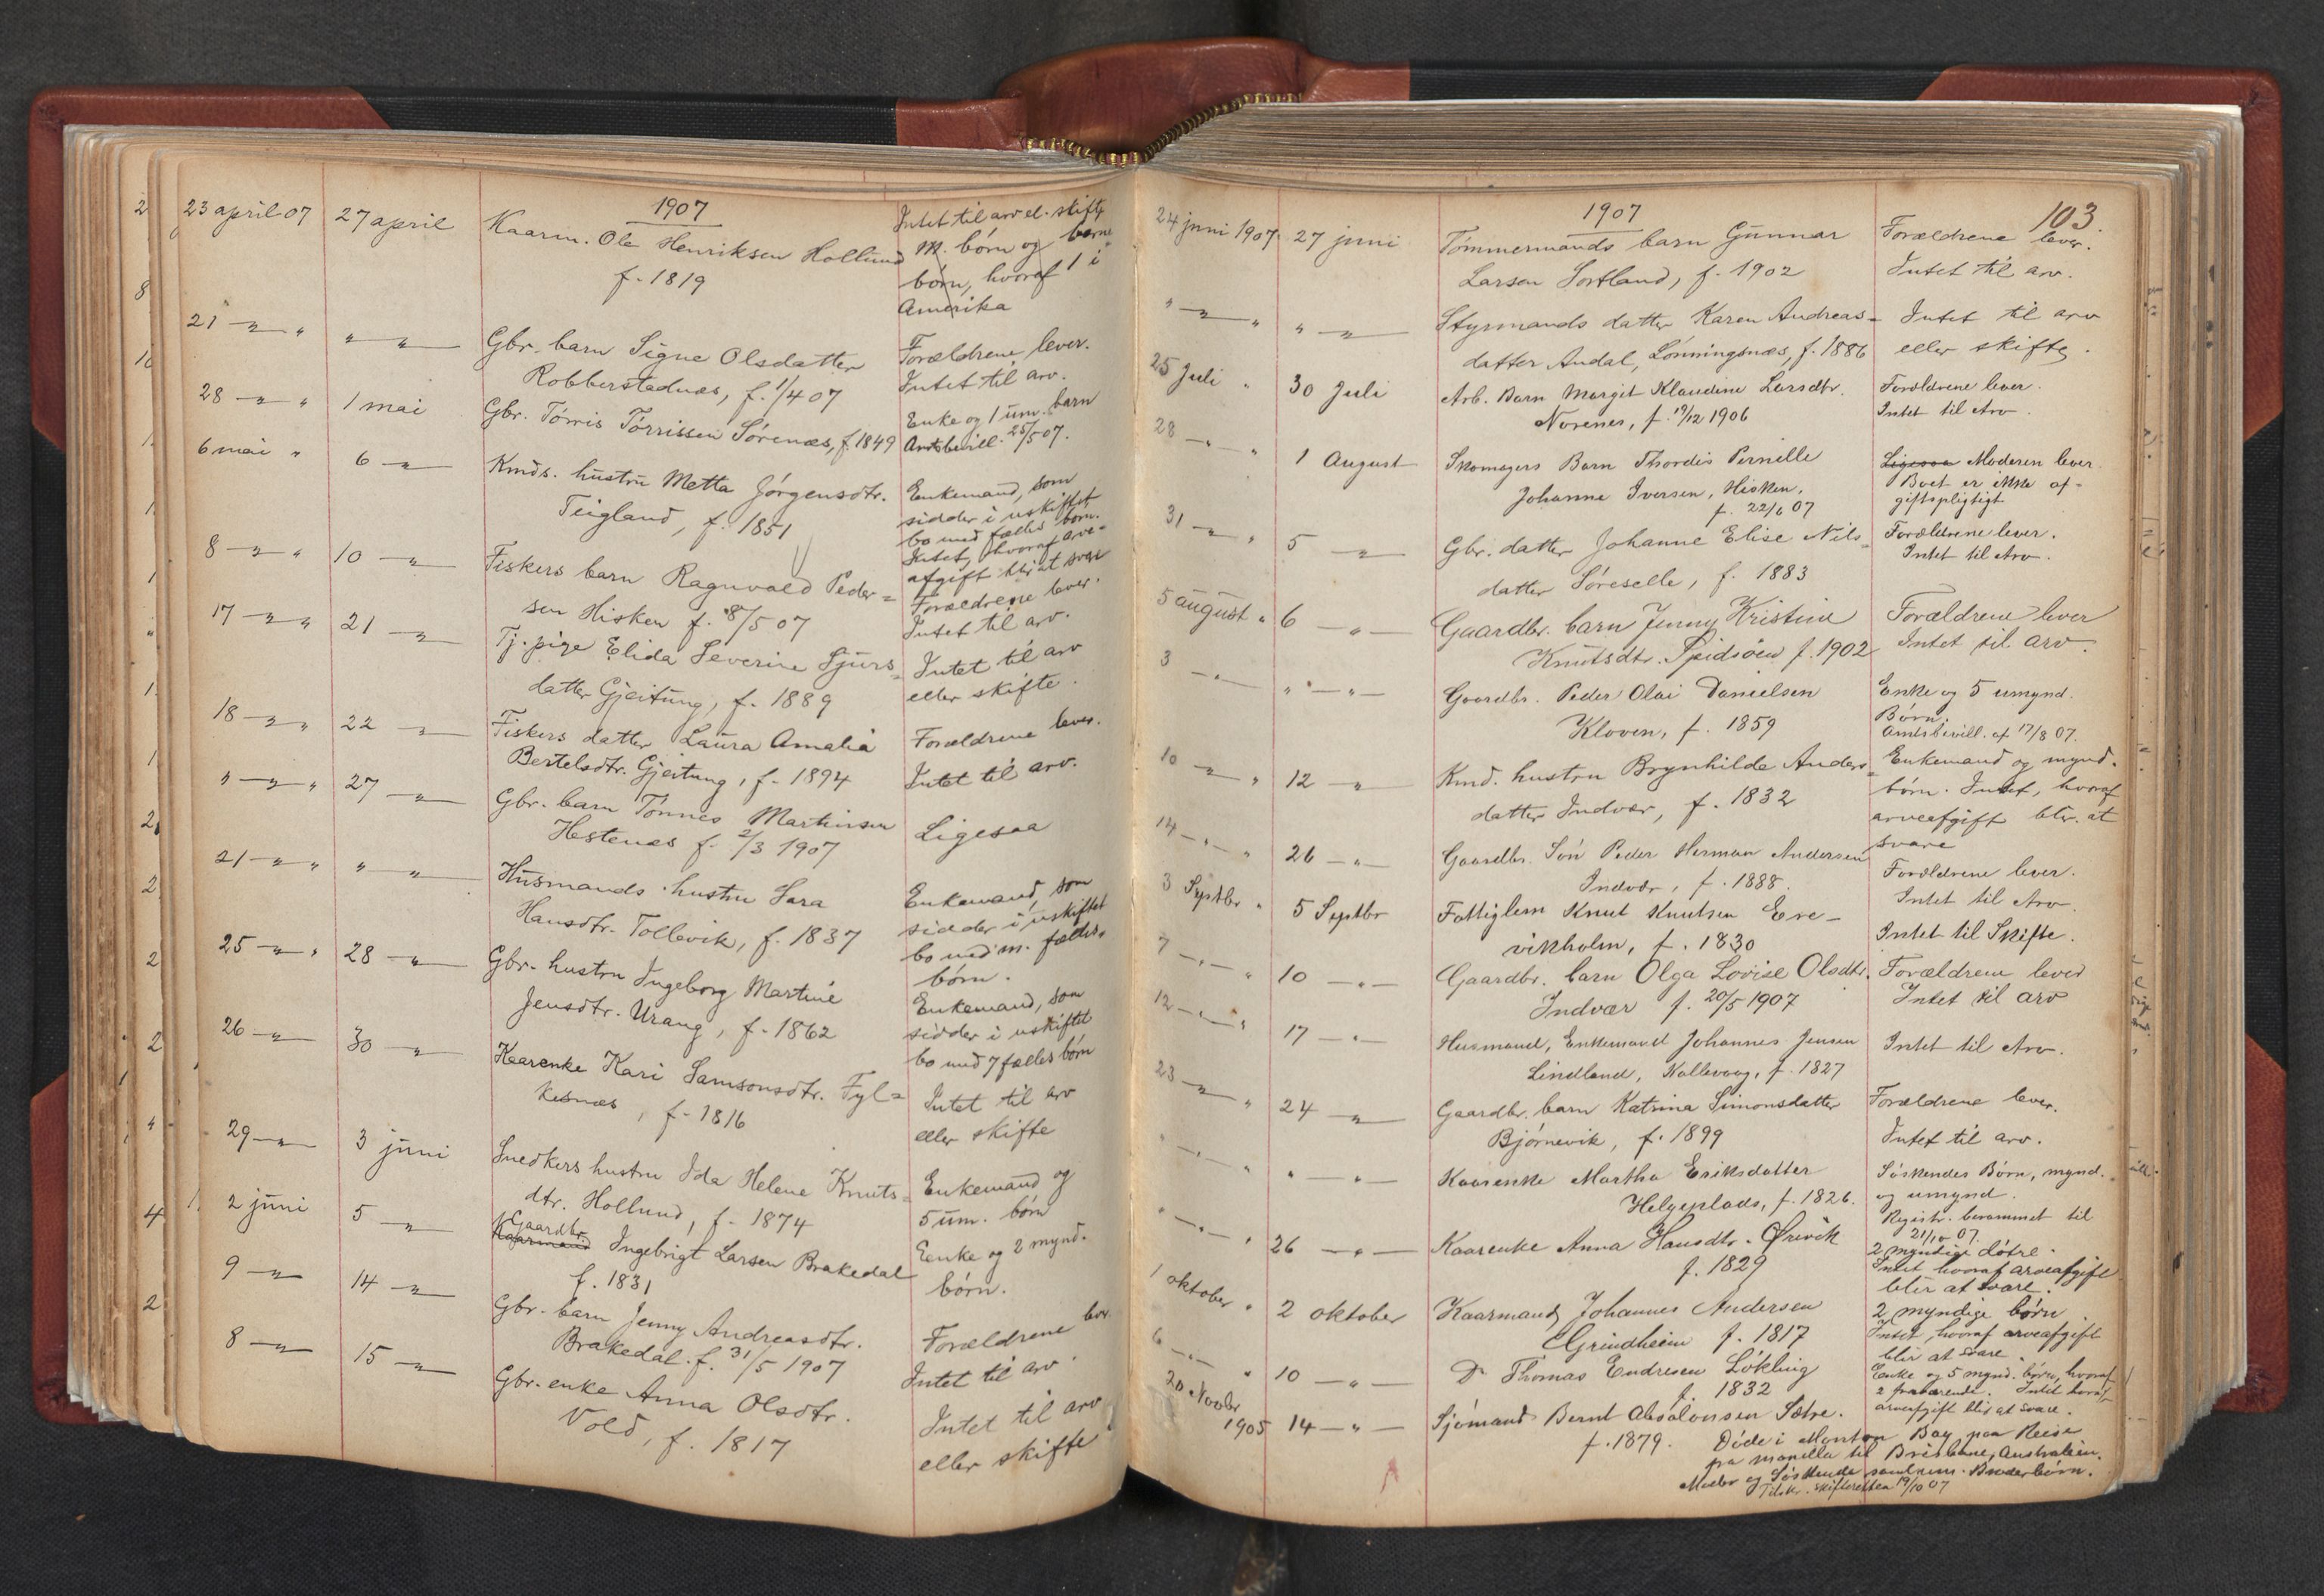 1907
23 april 07 27 april Kaarm. Ole Henriksen Hollund Intet til arv el. skifte
f. 1819 M. børn og barne
børn, hvoraf 1 i
Amerika
21 — " " — " — Gbr. barn Signe Olsdatter Forældrene lever.
Robberstadnæs, f. 1/4 07 Intet til arv.
28 — " " 1 mai Gbr. Tørris Tørrissen Sørenæs, f. 1849 Enke og 1 um. barn
Amtsbevill. 25/5 07.
6 mai " 6 — " — Kmds. hustru Metta Jørgensdtr. Enkemand, som
Teigland, f. 1851 sidder i uskiftet
bo med fælles børn.
Intet, hvoraf arve-
afgift blir at svare
8 — " " 10 — " — Fiskers barn Ragnvald Peder= Forældrene lever.
sen Hisken f. 8/5 07 Intet til arv.
17 — " " 21 — " — Tj. pige Elida Severine Sjurs= Intet til arv
datter Gjeitung, f. 1889 eller skifte.
18 — " " 22 — " — Fiskers datter Laura Amalia Forældrene lever.
Bertelsdtr. Gjeitung, f. 1894 Intet til arv.
" — " " 27 — " — Gbr. barn Tønnes Martinsen Ligesaa
Hestenes f. 2/3 1907
21 — " " " — " — Husmands hustru Sara Enkemand, som
Hansdtr. Tollevik, f. 1837 sidder i uskiftet
bo med m. fælles-
børn.
25 — " " 28 — " — Gbr. hustru Ingeborg Martine Enkemand, som
Jensdtr. Urang, f. 1862 sidder i uskiftet
bo med 7 fælles børn
26 — " — 30 — " — Kaarenke Kari Samsonsdtr. Fyl= Intet til arv
kesnæs, f. 1816 eller skifte
29 — " — 3 juni Snedkers hustru Ida Helene Knuts= Enkemand og
dtr. Hollund, f. 1874 5 um. børn
2 juni 5 — " — Gaardbr.
Kaarmand Ingebrigt Larsen Brakedal Enke og 2 mynd.
f. 1831 børn.
9 — " — 14 — " — Gbr. barn Jenny Andreasdtr. Forældrene lever
Brakedal. f. 31/5 1907 Intet til arv
8 — " — 15 — " — Gbr. enke Anna Olsdtr. Intet til arv
Vold, f. 1817 eller skifte
1907 103.
24 juni 1907. 27 juni Tømmermands barn Gunnar Forældrene lever.
Larsen Sortland, f. 1902 Intet til arv.
" — " — " " — " — Styrmands datter Karen Andreas= Intet til arv
datter Andal, Lønningsnæs, f. 1886 eller skifte.
25 Juli " 30 Juli Arb. Barn Margit Klaudine Larsdtr. Forældrene lever.
Norenes, f. 19/12 1906 Intet til Arv.
28 — " — " 1 August Skomagers Barn Thordis Pernille Ligesaa Moderen lever.
Johanne Iversen, Hisken, Boet er ikke af-
f. 22/6 07 giftspligtigt
31 — " — " 5 — " — Gbr. datter Johanne Elise Nils= Forældrene lever.
datter Søreselle, f. 1883 Intet til Arv.
5 august " 6 — " — Gaardbr. barn Jenny Kristine Forældrene lever
Knutsdtr. Spidsøen f. 1902 Intet til arv.
3 — " — " — " — Gaardbr. Peder Olai Danielsen Enke og 5 umynd.
Kloven, f. 1859 Børn.
Amtsbevill. af 17/8 07.
10 — " — " 12 — " — Kmd. hustru Brynhilde Anders= Enkemand og mynd.
datter Indvær, f. 1832 børn. Intet, hvoraf
arveafgift blir at
svare
14 — " — " 26 — " — Gaardbr. Søn Peder Herman Andersen Forældrene lever.
Indvær, f. 1888. Intet til Arv.
3 Septbr " 5 Septbr Fattiglem Knut Knutsen Ere- Intet til Skifte.
vikholm, f. 1830
7 — " — " 10 — " — Gaardbr. barn Olga Lovise Olsdtr. Forældrene lever
Indvær f. 20/5 1907 Intet til arv
12 — " — " 17 — " — Husmand, Enkemand Johannes Jensen Intet til Arv.
Lindland, Kallevaag, f. 1827
23 — " — " 24 — " — Gaardbr. barn Katrina Simonsdatter Forældrene lever.
Bjørnevik, f. 1899 Intet til arv.
" — " — " " — " — Kaarenke Martha Eriksdatter Søskendes Børn, mynd.
Helgeplads, f. 1826. og umynd.
Registr. berammet til
21/10 07.
" — " — " 26 — " — Kaarenke Anna Hansdtr. Ørevik 2 myndige døtre.
f. 1829 Intet hvoraf arveafgift
blir at svare.
1 oktober " 2 oktober Kaarmand Johannes Andersen 2 myndige børn
Grindheim f. 1817 Intet, hvoraf arveafgift
blir at svare.
6 — " — " 10 — " — Dr Thomas Endresen Løkling Enke og 5 mynd. børn, hvoraf
f. 1832 2 fraværende. Intet hvoraf
arveafgift blir at svare.
20 Novbr
1905 14 — " — Sjømand Bernt Absalonsen Sætre.
f. 1879. Døde i Morton Bay paa Reise
fra Manilla til Brisbane, Australien.
Moder og Søskende samt um. Broderbørn.
Tilskr. skifteretten 19/10 07